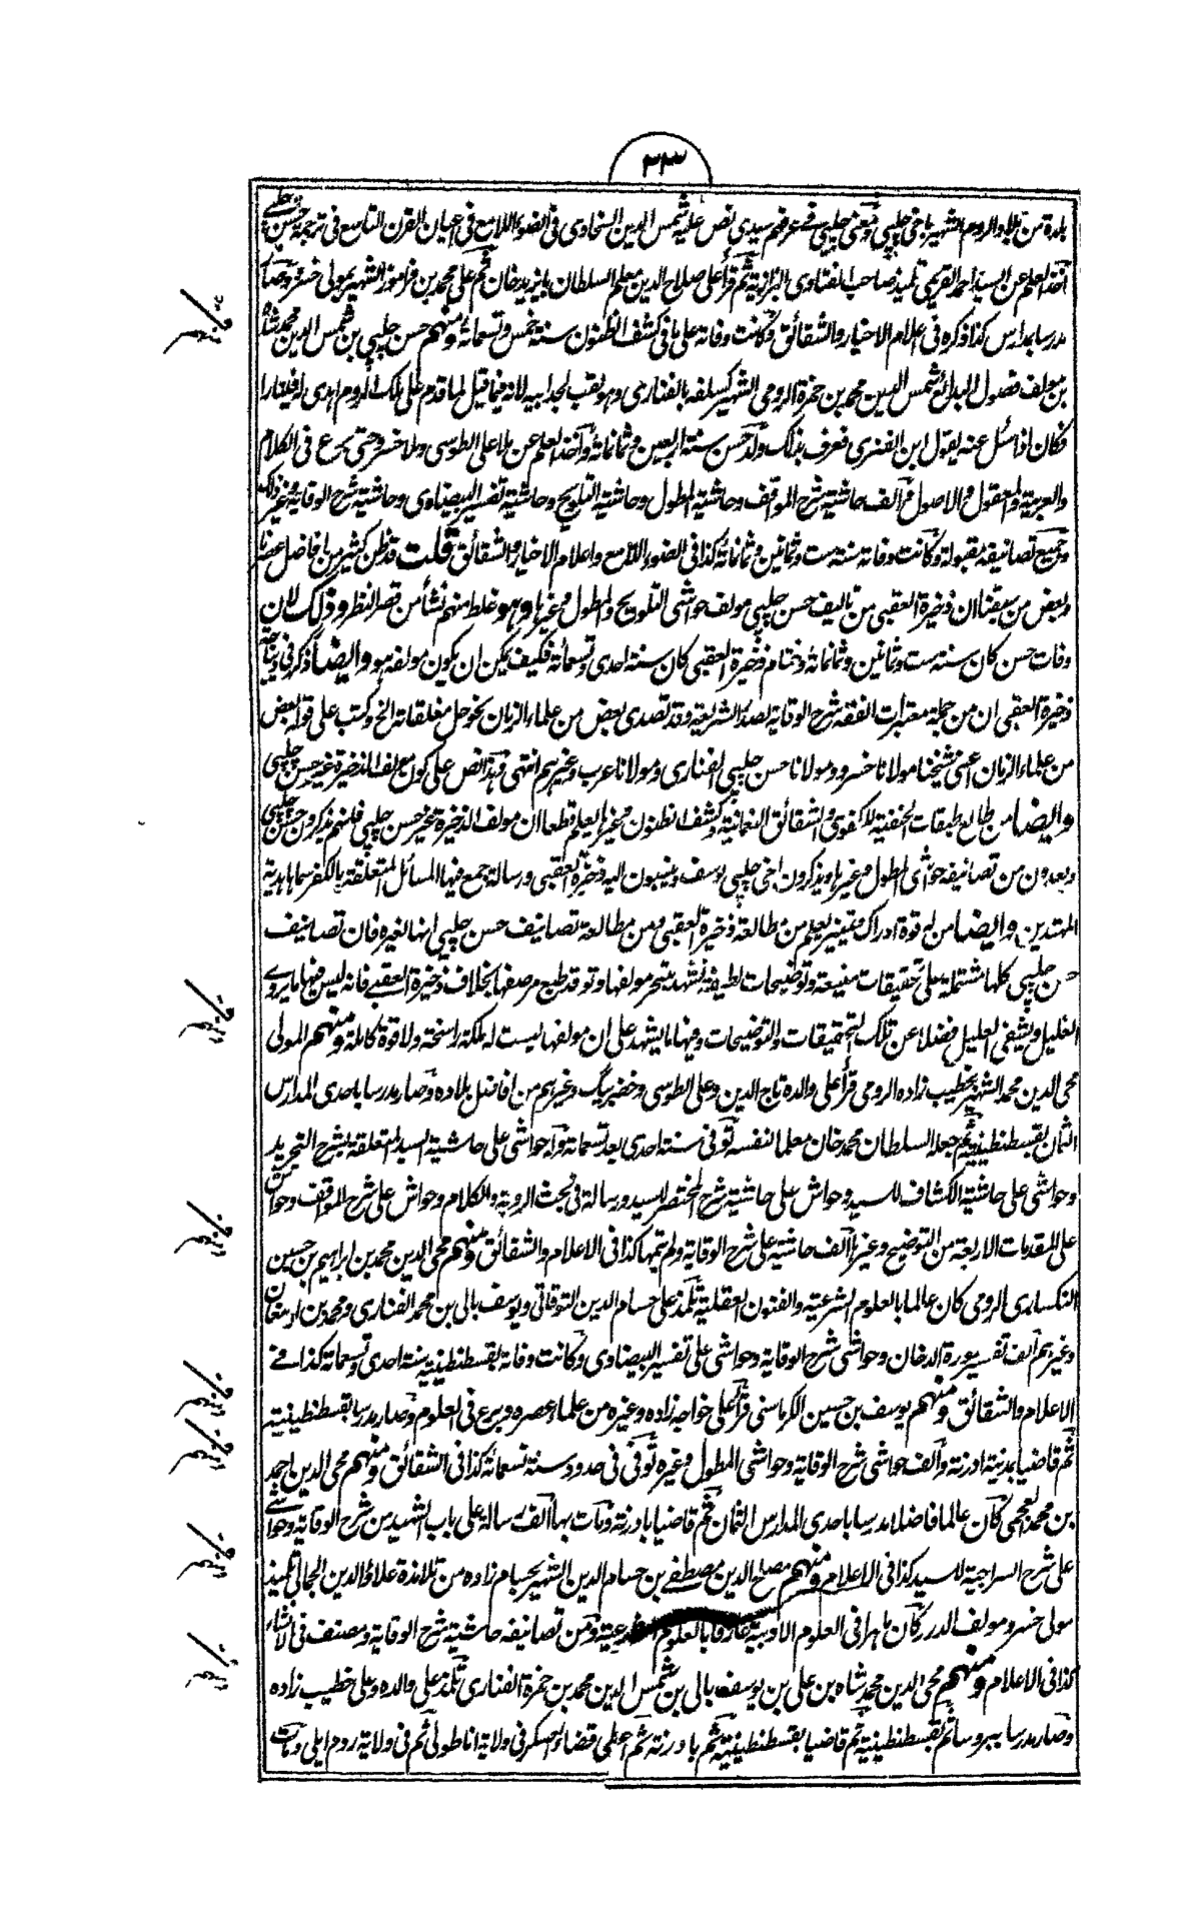 ٣٣
بلدة من بلاد الروم الشهير باخي چلپي ومعنى چلپي في عرفهم سيدي نص عليه شمس الدين السخاوي في الضوء اللامع في اعيان القرن التاسع في ترجمة حسن چلپي
اخذ العلم عن السيد احمد القريمي تلميذ صاحب الفتاوى البزازية ثم قرأ على صلاح الدين معلم السلطان بايزيد خان ثم على محمد بن فراموز الشهير بمولى خسرو وصار
مدرسا بمدارس كذا ذكره في اعلام الاخيار والشقائق وكانت وفاته على ما في كشف الظنون سنة خمس وتسعمائة ومنهم حسن چلپي بن شمس الدين محمد شاه
بن مولف فصول البدائع شمس الدين محمد بن حمزة الرومي الشهير كسلفه بالفناري وهو لقب لجد ابيه لانه فيما قيل لما قدم على ملك الروم اهدى له فينارا
فكان اذا سئل عنه يقول اين الفنري فعرف بذلك ولد حسن سنة اربعين وثمانمائة واخذ العلم عن ملا على الطوسي وملا خسرو حتى برع في الكلام
والعربية والمعقول والاصول والف حاشية شرح المواقف وحاشية المطول وحاشية التلويح وحاشية تفسير البيضاوي وحاشية شرح الوقاية وغير ذلك
وجميع تصانيفه مقبولة وكانت وفاته سنة ست وثمانين وثمانمائة كذا في الضوء اللامع واعلام الاخيار والشقائق قلت قد ظن كثير من افاضل عصرنا
وبعض من سبقنا ان ذخيرة العقبى من تاليف حسن چلپي مولف حواشي التلويح والمطول وغيرها وهو غلط منهم نشأ من قصر النظر وذلك لان
وفات حسن كان سنة ست وثمانين وثمانمائة وختام ذخيرة العقبى كان سنة احدى وتسعمائة فكيف يمكن ان يكون مولفه هو وايضا ذكر في ديباجة
ذخيرة العقبى ان من جملة معتبرات الفقه شرح الوقاية لصدر الشريعة وقد تصدى بعض من علماء الزمان نحو حل مغلقاته الخ وكتب على قوله بعض
من علماء الزمان اعني شيخنا مولانا خسرو ومولانا حسن چلپي الفناري ومولانا عرب وغيرهم انتهى فهذا نص على كون مولف الذخيرة غير حسن چلپي
وايضا من طالع طبقات الحنفية للكفوي والشقائق النعمانية وكشف الظنون وغيرها يعلم قطعا ان مولف الذخيرة غير حسن چلپي فانهم يذكرون حسن چلپي
ويعدون من تصانيفه حواشي المطول وغيرها ويذكرون اخي چلپي يوسف وينسبون اليه ذخيرة العقبى ورسالة جمع فيها المسائل المتعلقة بالكفر سماها هدية
المهتدين وايضا من له قوة ادراك وتمييز يعلم من مطالعة ذخيرة العقبى ومن مطالعة تصانيف حسن چلپي انها لغيره فان تصانيف
حسن چلپي كلها مشتملة على تحقيقات منيعة وتوضيحات لطيفة تشهد بتبحر مولفها وتوقد طبع مرصفها بخلاف ذخيرة العقبى فانه ليس فيها ما يروي
الغليل ويشفي العليل فضلا عن تلك التحقيقات والتوضيحات وفيها ما يشهد على ان مولفها ليست له ملكة راسخة ولا قوة كاملة ومنهم المولى
محي الدين محمد الشهير بخطيب زاده الرومي قرأ على والده تاج الدين وعلى الطوسي وخضر بيگ وغيرهم من افاضل بلاده وصار مدرسا باحدى المدارس
الثمان بقسطنطينية ثم جعله السلطان محمد خان معلما لنفسه توفى سنة احدى بعد تسعمائة وله حواشي على حاشية السيد المتعلقة بشرح التجريد
وحواشي على حاشية الكشاف للسيد وحواش على حاشية شرح المختصر للسيد ورسالة في بحث الروية والكلام وحواش على شرح المواقف وحواش
على المقدمات الاربعة من التوضيح وغيرها الف حاشية على شرح الوقاية ولم يتمها كذا في الاعلام والشقائق ومنهم محي الدين محمد بن ابراهيم بن حسين
النكساري الرومي كان عالما بالعلوم الشرعية والفنون العقلية تلمذ على حسام الدين التوقاتي ويوسف بالي بن محمد الفناري ومحمد بن ارمغان
وغيرهم الف تفسير سورة الدخان وحواشي شرح الوقاية وحواشي على تفسير البيضاوي وكانت وفاته بقسطنطينية سنة احدى وتسعمائة كذا في
الاعلام والشقائق ومنهم يوسف بن حسين الكرماستي قرأ على خواجه زاده وغيره من علماء عصره وبرع في العلوم وصار مدرسا بقسطنطينية
ثم قاضيا بمدينة ادرنة والف حواشي شرح الوقاية وحواشي المطول وغيره توفى في حدود سنة تسعمائة كذا في الشقائق ومنهم محي الدين احمد
بن محمد العجمي كان عالما فاضلا مدرسا باحدى المدارس الثمان ثم قاضيا بادرنة ومات بها الف رسالة على باب الشهيد من شرح الوقاية وحواشي
على شرح السراجية للسيد كذا في الاعلام ومنهم مصلح الدين مصطفى بن حسام الدين الشهير بحسام زاده من تلامذة علاؤ الدين الجمالي تلميذ
مولى خسرو مولف الدرر كان ماهرا في العلوم الادبية عارفا بالعلوم الشرعية ومن تصانيفه حاشية شرح الوقاية ومصنف في الانشاء
كذا في الاعلام ومنهم محي الدين محمد شاه بن علي بن يوسف بالي بن شمس الدين محمد بن حمزة الفناري تلمذ على والده وعلى خطيب زاده
وصار مدرسا ببروسا ثم بقسطنطينية ثم قاضيا بقسطنطينية ثم بادرنة ثم اعطي قضاء العسكر في ولاية اناطولي ثم في ولاية روم ايلي ومات